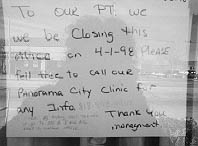 To our PT. we
we be Closing this
office on 4-1-98 PLEASE
feil free to call our
Panorama City Clinic for
any Info.
Thank you
management.